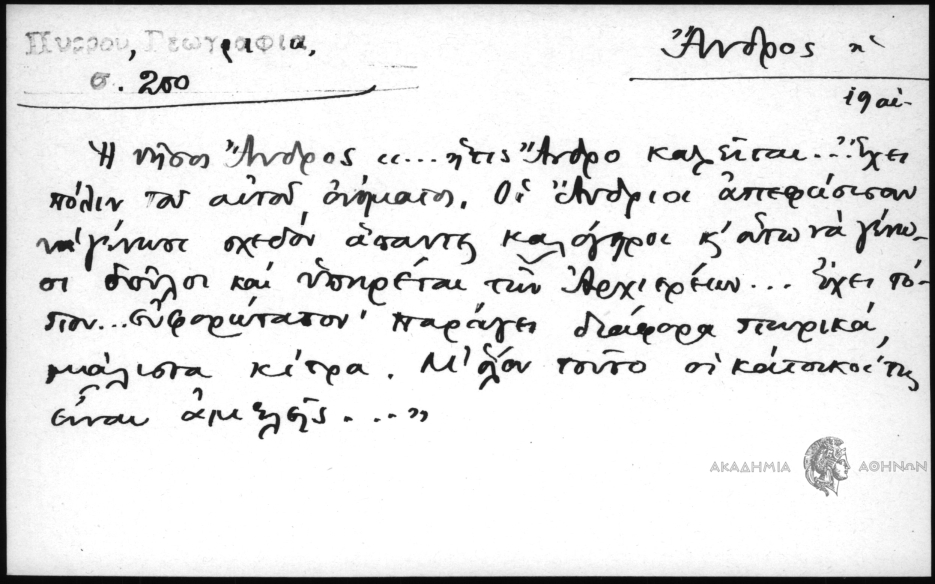 Πύρρου, Γεωγραφία,
σ. 200
Ἄνδρος ἡ
19 αἰ.
Ἡ νῆσος Ἄνδρος «....ἥτις Ἄνδρο καλεῖται...Ἔχει
πόλιν τοῦ αὐτοῦ ὀνόματος. Οἱ Ἄνδριοι ἀπεφάσισαν
νὰ γίνωσι σχεδὸν ἅπαντες καλόγηροι κ' οὕτω νὰ γίνω-
σι δοῦλοι καὶ ὑπηρέται τῶν Ἀρχιερέων... Ἔχει τό-
πον...εὐφορώτατον· Παράγει διάφορα πωρικά,
μάλιστα κίτρα. Μ' ὅλον τοῦτο οἱ κάτοικοί της
εἶναι ἀμελεῖς....»
ΑΚΑΔΗΜΙΑ ΑΘΗΝΩΝ